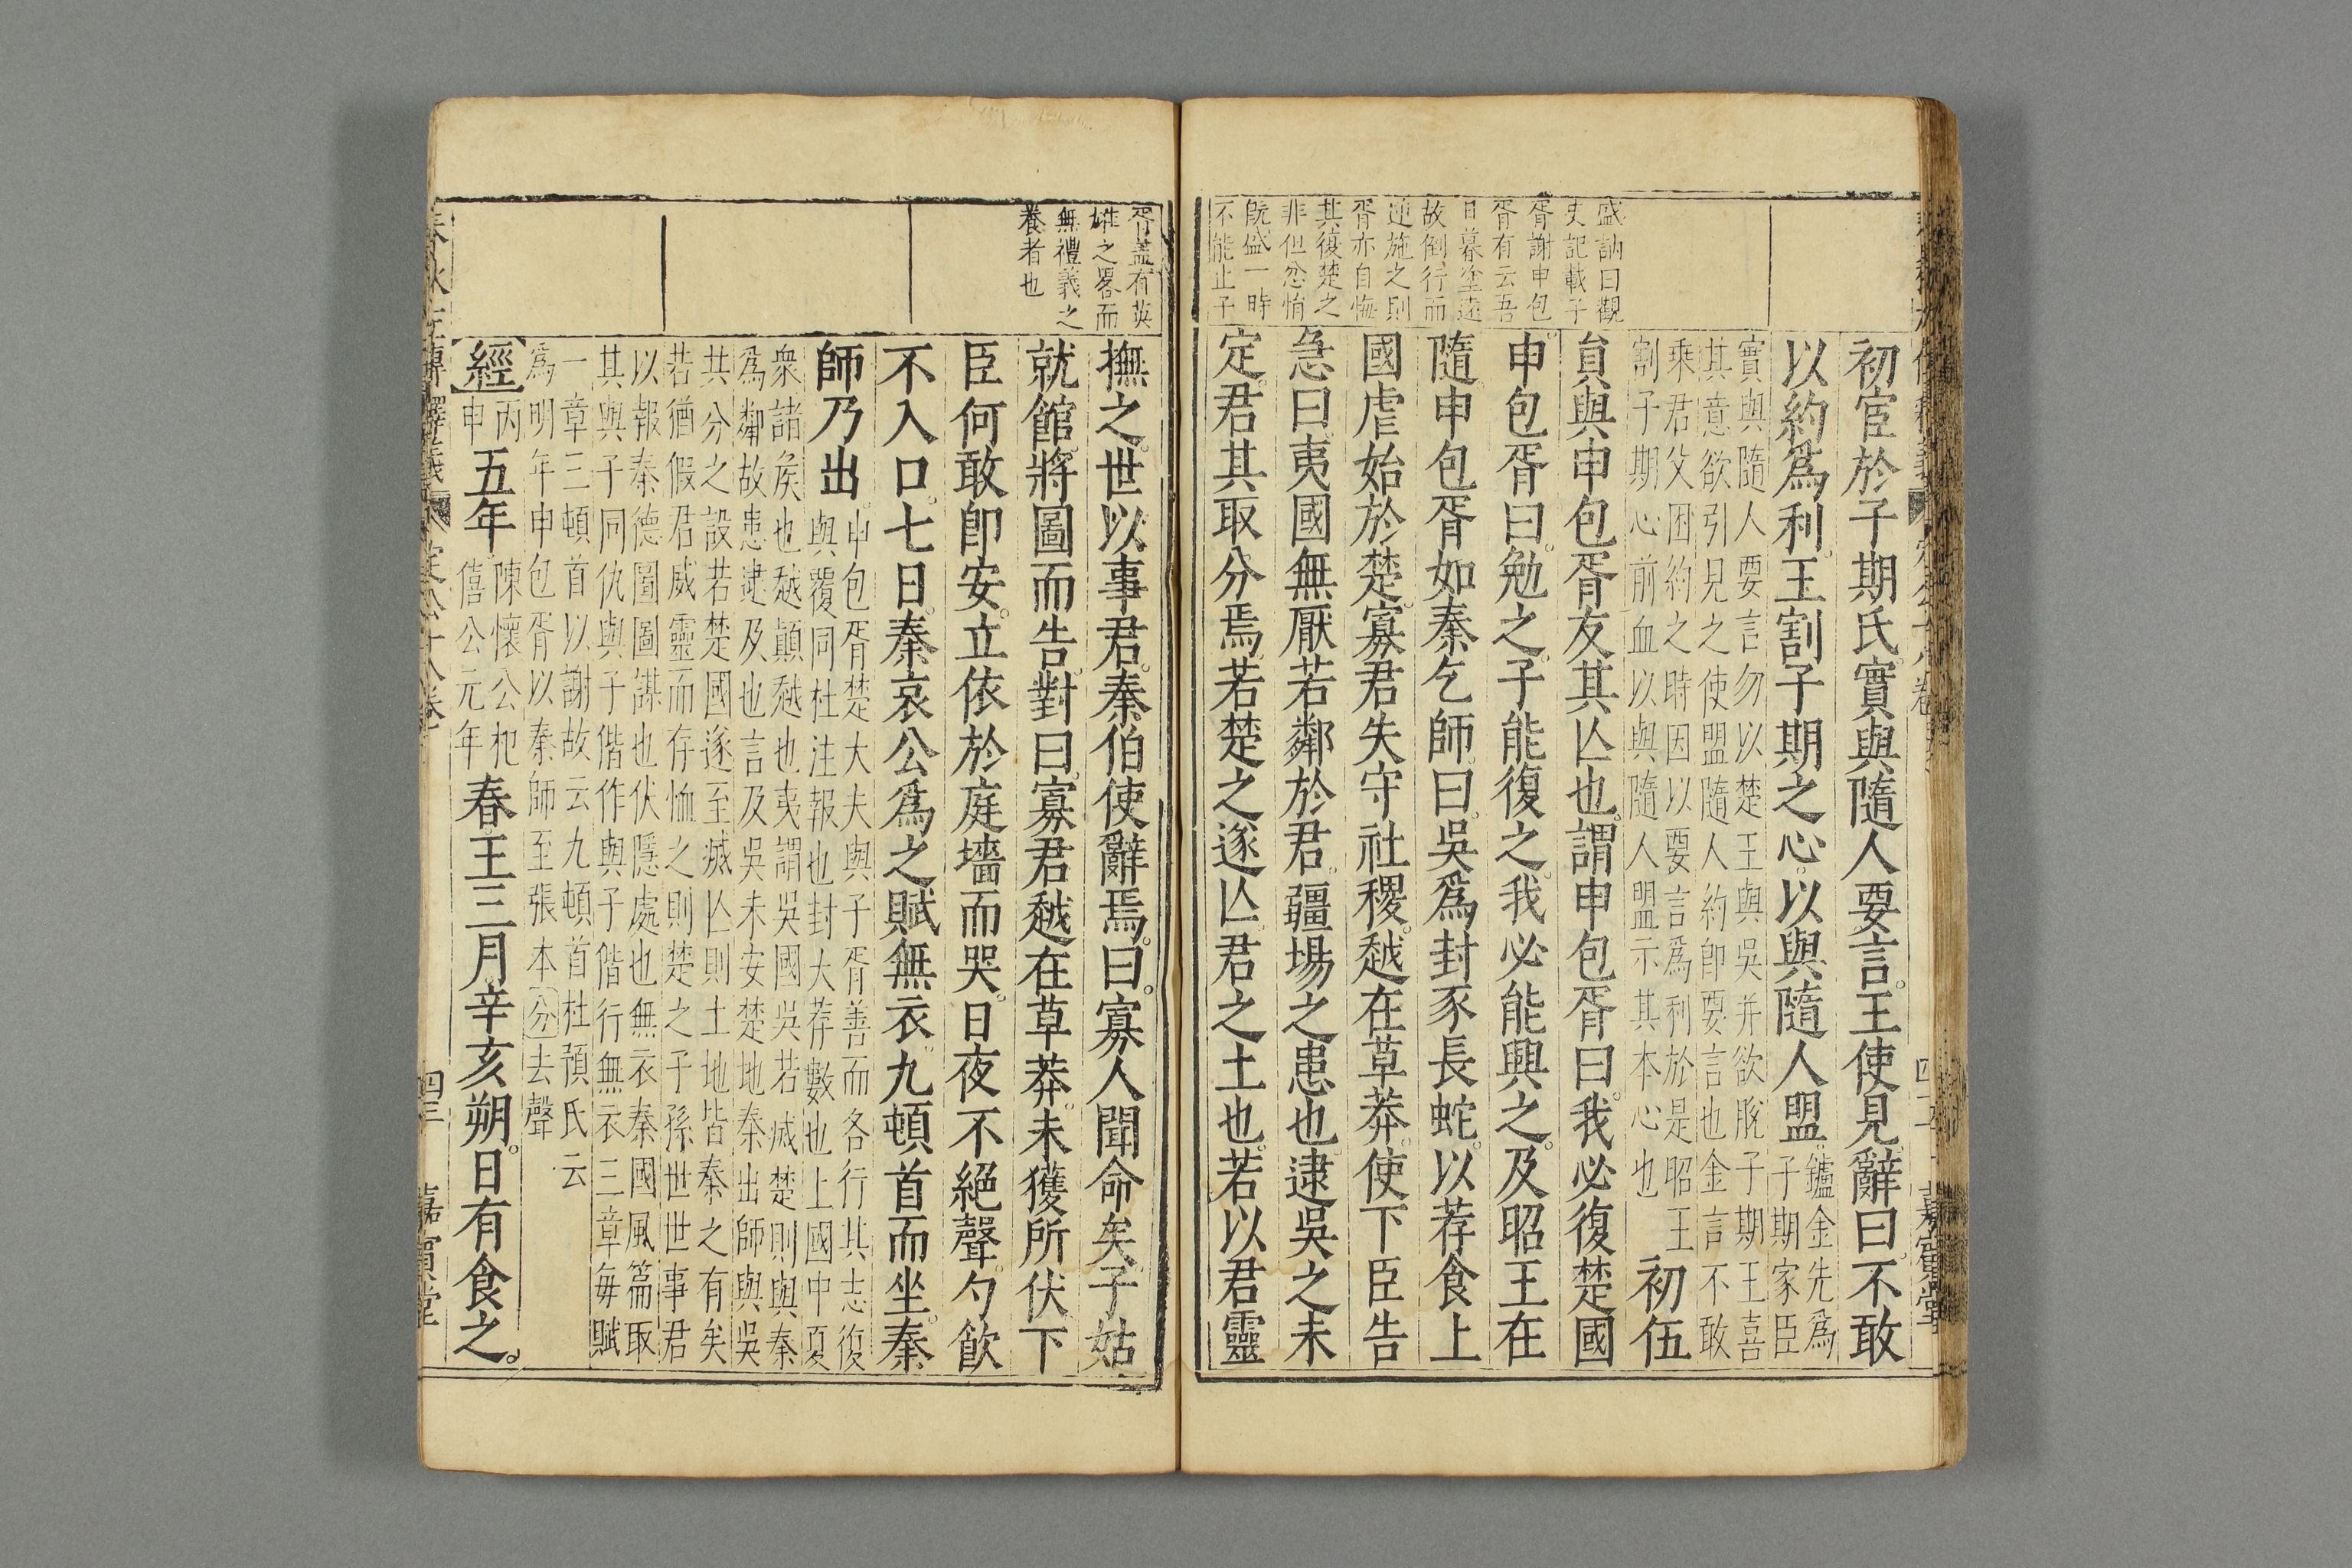 初宦於子期氏實與隨人要言王使見辭曰不敢
以約爲利王割子期之心以與隨人盟鑪金先爲子期家臣
實與隨人要言勿以楚王與吳并欲脫子期王喜
其意欲引見之使盟隨人約即要言也金言不敢
乘君父困約之時因以要言爲利於是昭王
割子期心前血以與隨人盟示其本心也
初伍
員與申包胥友其亾也謂申包胥曰我必復楚國
申包胥曰勉之子能復之我必能興之及昭王在
隨申包胥如秦乞師曰吳爲封豕長蛇以荐食上
國虐始於楚寡君失守社稷越在草莽使下臣告
急曰夷國無厭若鄰於君疆場之患也逮吳之未
定君其取分焉若楚之遂亾君之土也若以君靈
盛訥曰觀
史記載子
胥謝申包
胥有云吾
日暮塗遠
故倒行而
逆施之則
胥亦自悔
其復楚之
非但忿悄
旣盛一時
不能止子
胥蓋有英
雄之畧而
無禮義之
養者也
撫之世以事君秦伯使辭焉曰寡人聞命矣子姑
就館將圖而告對曰寡君越在草莽未獲所伏下
臣何敢即安立依於庭墻而哭日夜不絕聲勺飲
不入口七日秦哀公爲之賦無衣九頓首而坐秦
師乃出
申包胥楚大夫與子胥善而各行其志復
與覆同杜注報也封大荐數也上國中夏
衆諸侯也越顛越也夷謂吳國吳若滅楚則與秦
爲鄰故患逮及也言及吳未安楚地秦出師與吳
共分之設若楚國遂至滅亾則土地皆秦之有矣
若猶假君威靈而存恤之則楚之子孫世世事君
以報秦德圖圖謀也伏隱處也無衣秦國風篇取
其與子同仇與子偕作與子偕行無衣三章每賦
一章三頓首以謝故云九頓首杜預氏云
爲明年申包胥以秦師至張本分去聲
經丙申五年陳懷公杞僖公元年春王三月辛亥朔日有食之
春秋左傳釋義
定公十八卷
四三
嘉賓堂